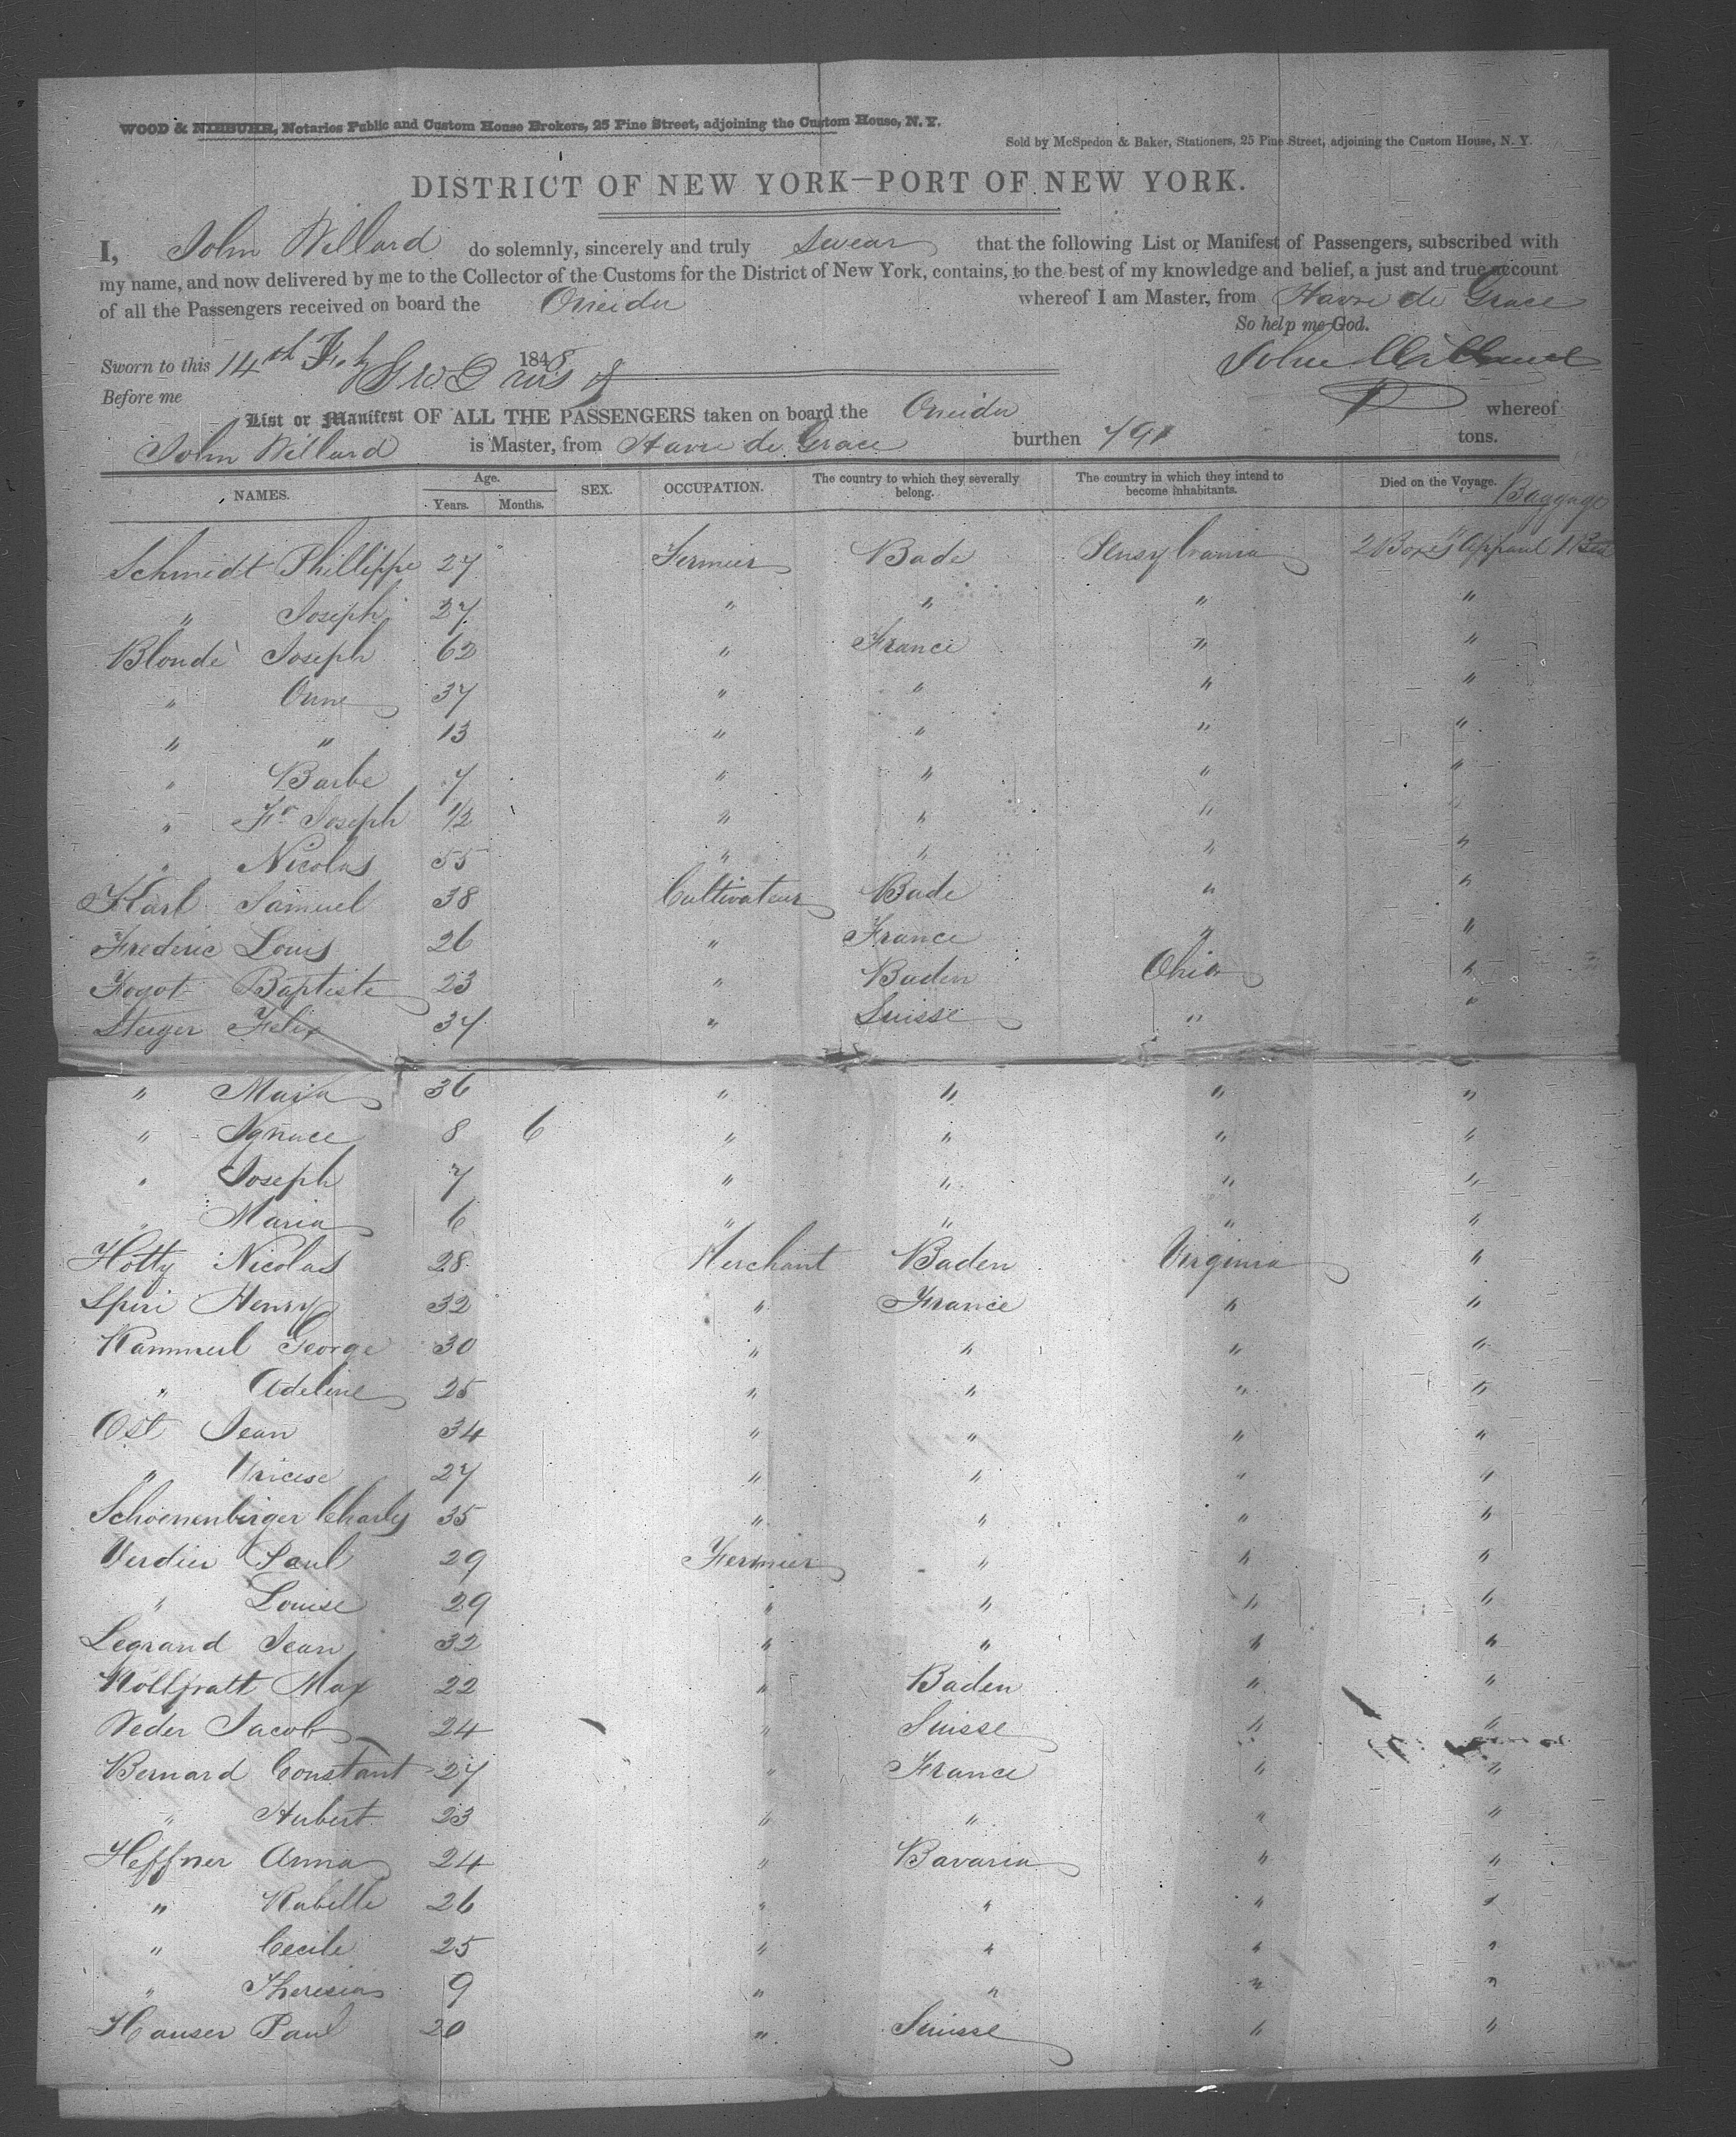 WOOD & NIEBUHR, Notaries Public and Custom House Brokers, 25 Pine Street, adjoining the Custom House, N. Y.
Sold by McSpedon & Baker, Stationers, 25 Pine Street, adjoining the Custom House, N. Y.
DISTRICT OF NEW YORK—PORT OF NEW YORK.
I, John Willard do solemnly, sincerely and truly swear that the following List or Manifest of Passengers, subscribed with
my name, and now delivered by me to the Collector of the Customs for the District of New York, contains, to the best of my knowledge and belief, a just and true account
of all the Passengers received on board the Oneida whereof I am Master, from Havre de Grace
So help me God.
Sworn to this 14th Feb 1848 John Willard
Before me
List or Manifest OF ALL THE PASSENGERS taken on board the Oneida whereof
John Willard is Master, from Havre de Grace burthen 791 tons.
NAMES. Age. Years. Months. SEX. OCCUPATION. The country to which they severally belong. The country in which they intend to become inhabitants. Died on the Voyage. Baggage
Schmidt Phillippe 27 Fermier Bade Pensylvania 2 Boxes apparel 1 Bed
" Joseph 27 " " " "
Blondé Joseph 62 " France " "
" Anne 37 " " " "
" " 13 " " " "
" Barbe 7 " " " "
" Fs Joseph 1/2 " " " "
" Nicolas 55 " " " "
Karl Samuel 38 Cultivateur Bade " "
Frederic Louis 26 " France " "
Fogot Baptiste 23 " Baden Ohio "
Steiger Felix 37 " Suisse " "
" Maria 36 " " " "
" Ignace 8 6 " " " "
" Joseph 7 " " " "
" Maria 6 " " " "
Hotty Nicolas 28 Merchant Baden Virginia "
Speri Henry 32 " France " "
Kammerl George 30 " " " "
" Adeline 25 " " " "
Ost Jean 34 " " " "
" 27 " " " "
Schoenenberger Charles 35 " " " "
Verdier Paul 29 Fermier " " "
" Louise 29 " " " "
Legrand Jean 32 " " " "
Kollpratt Max 22 " Baden " "
Weder Jacob 24 " Suisse " "
Bernard Constant 27 " France " "
" Hubert 23 " " " "
Heffner Anna 24 " Bavaria " "
" Kabelle 26 " " " "
" Cecile 25 " " " "
" Theresia 9 " " " "
Hauser Paul 20 " Suisse " "